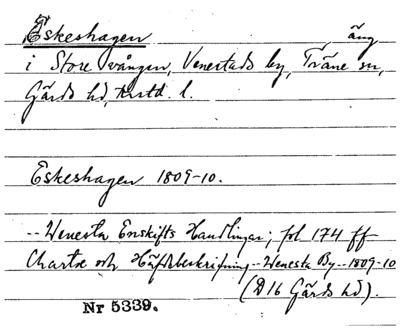 Eskeshagen äng
i Store vången, Venestads by, Träne sn,
Gärds hd, Krstd. l.
Eskeshagen 1809-10.
-- Wenesta Enskifts Handlingar; fol 174 ff
Charta och Häfdebeskrifning -- Wenesta By -- 1809-10
(D16 Gärds hd).
Nr 5339.